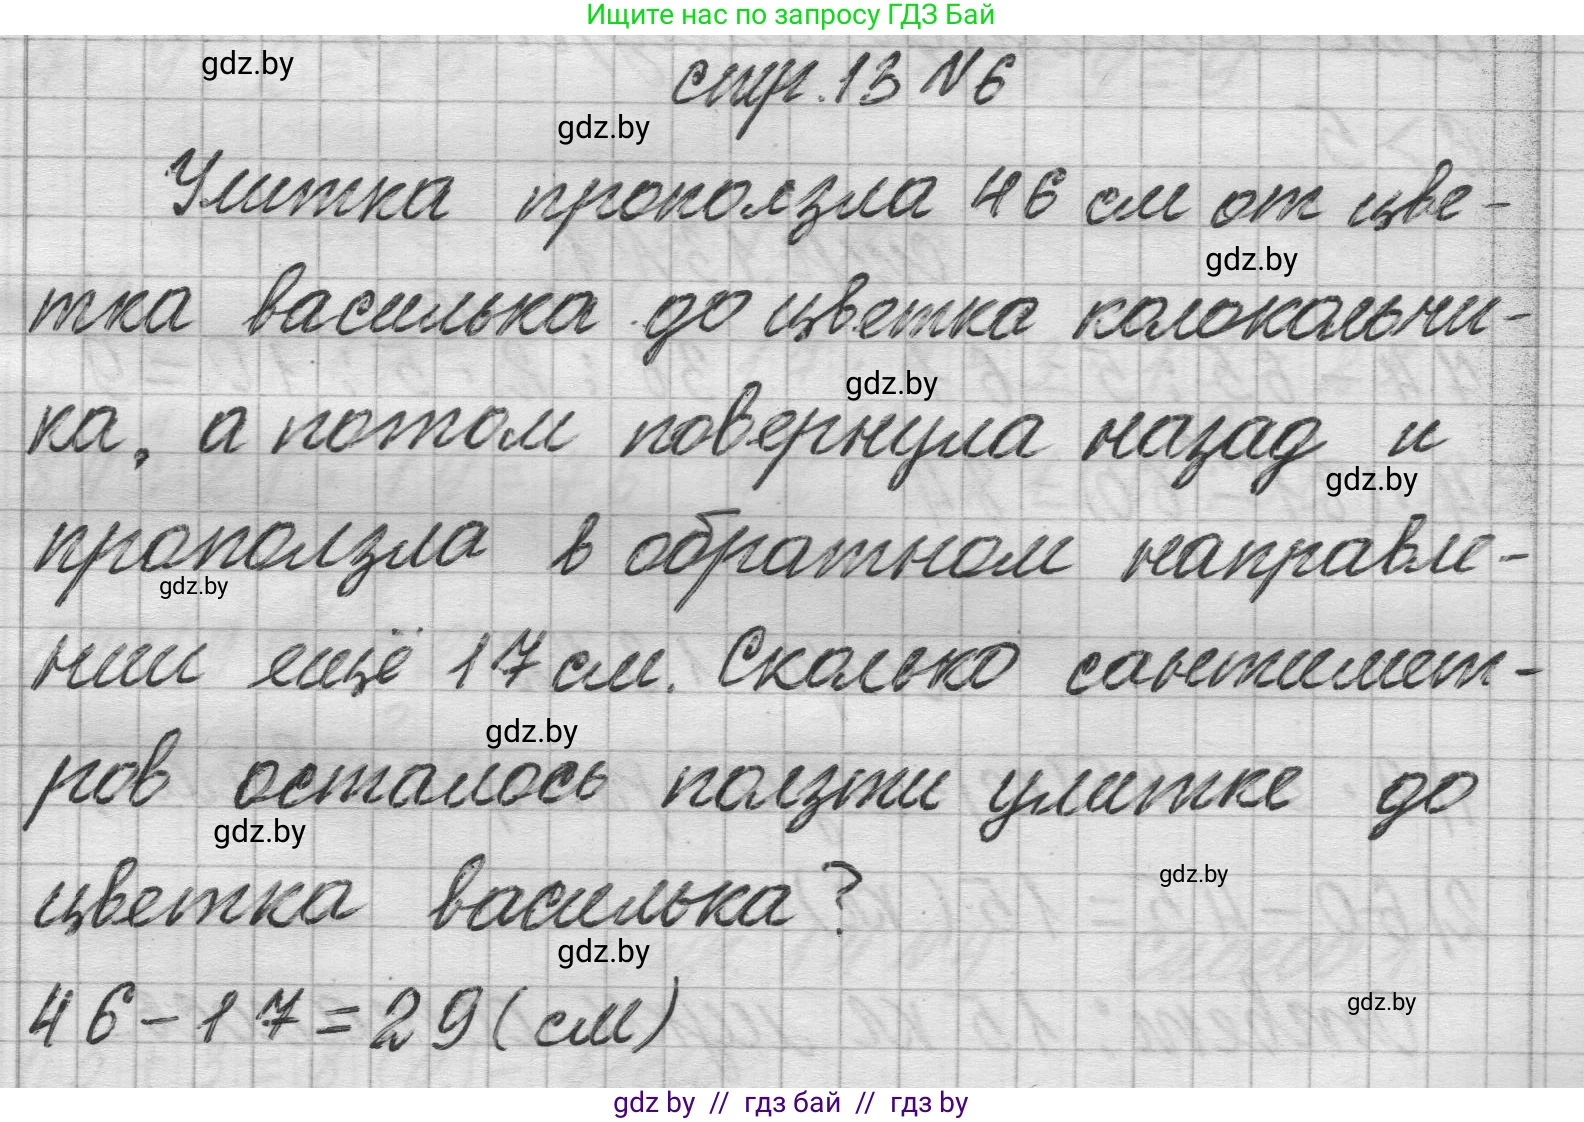 Ищите нас по запросу ГДЗ Бай
gdz.by
стр. 13 №6
gdz.by
Улитка проползла 46 см от цве-
gdz.by
тка василька до цветка колокольчи-
gdz.by
ка, а потом повернула назад и
gdz.by
проползла в обратном направле-
gdz.by
нии ещё 17 см. Сколько сантимет-
gdz.by
ров осталось ползти улитке до
gdz.by
цветка василька?
gdz.by
gdz.by
46-17=29(см)
gdz.by
gdz by // гдз бай // гдз by